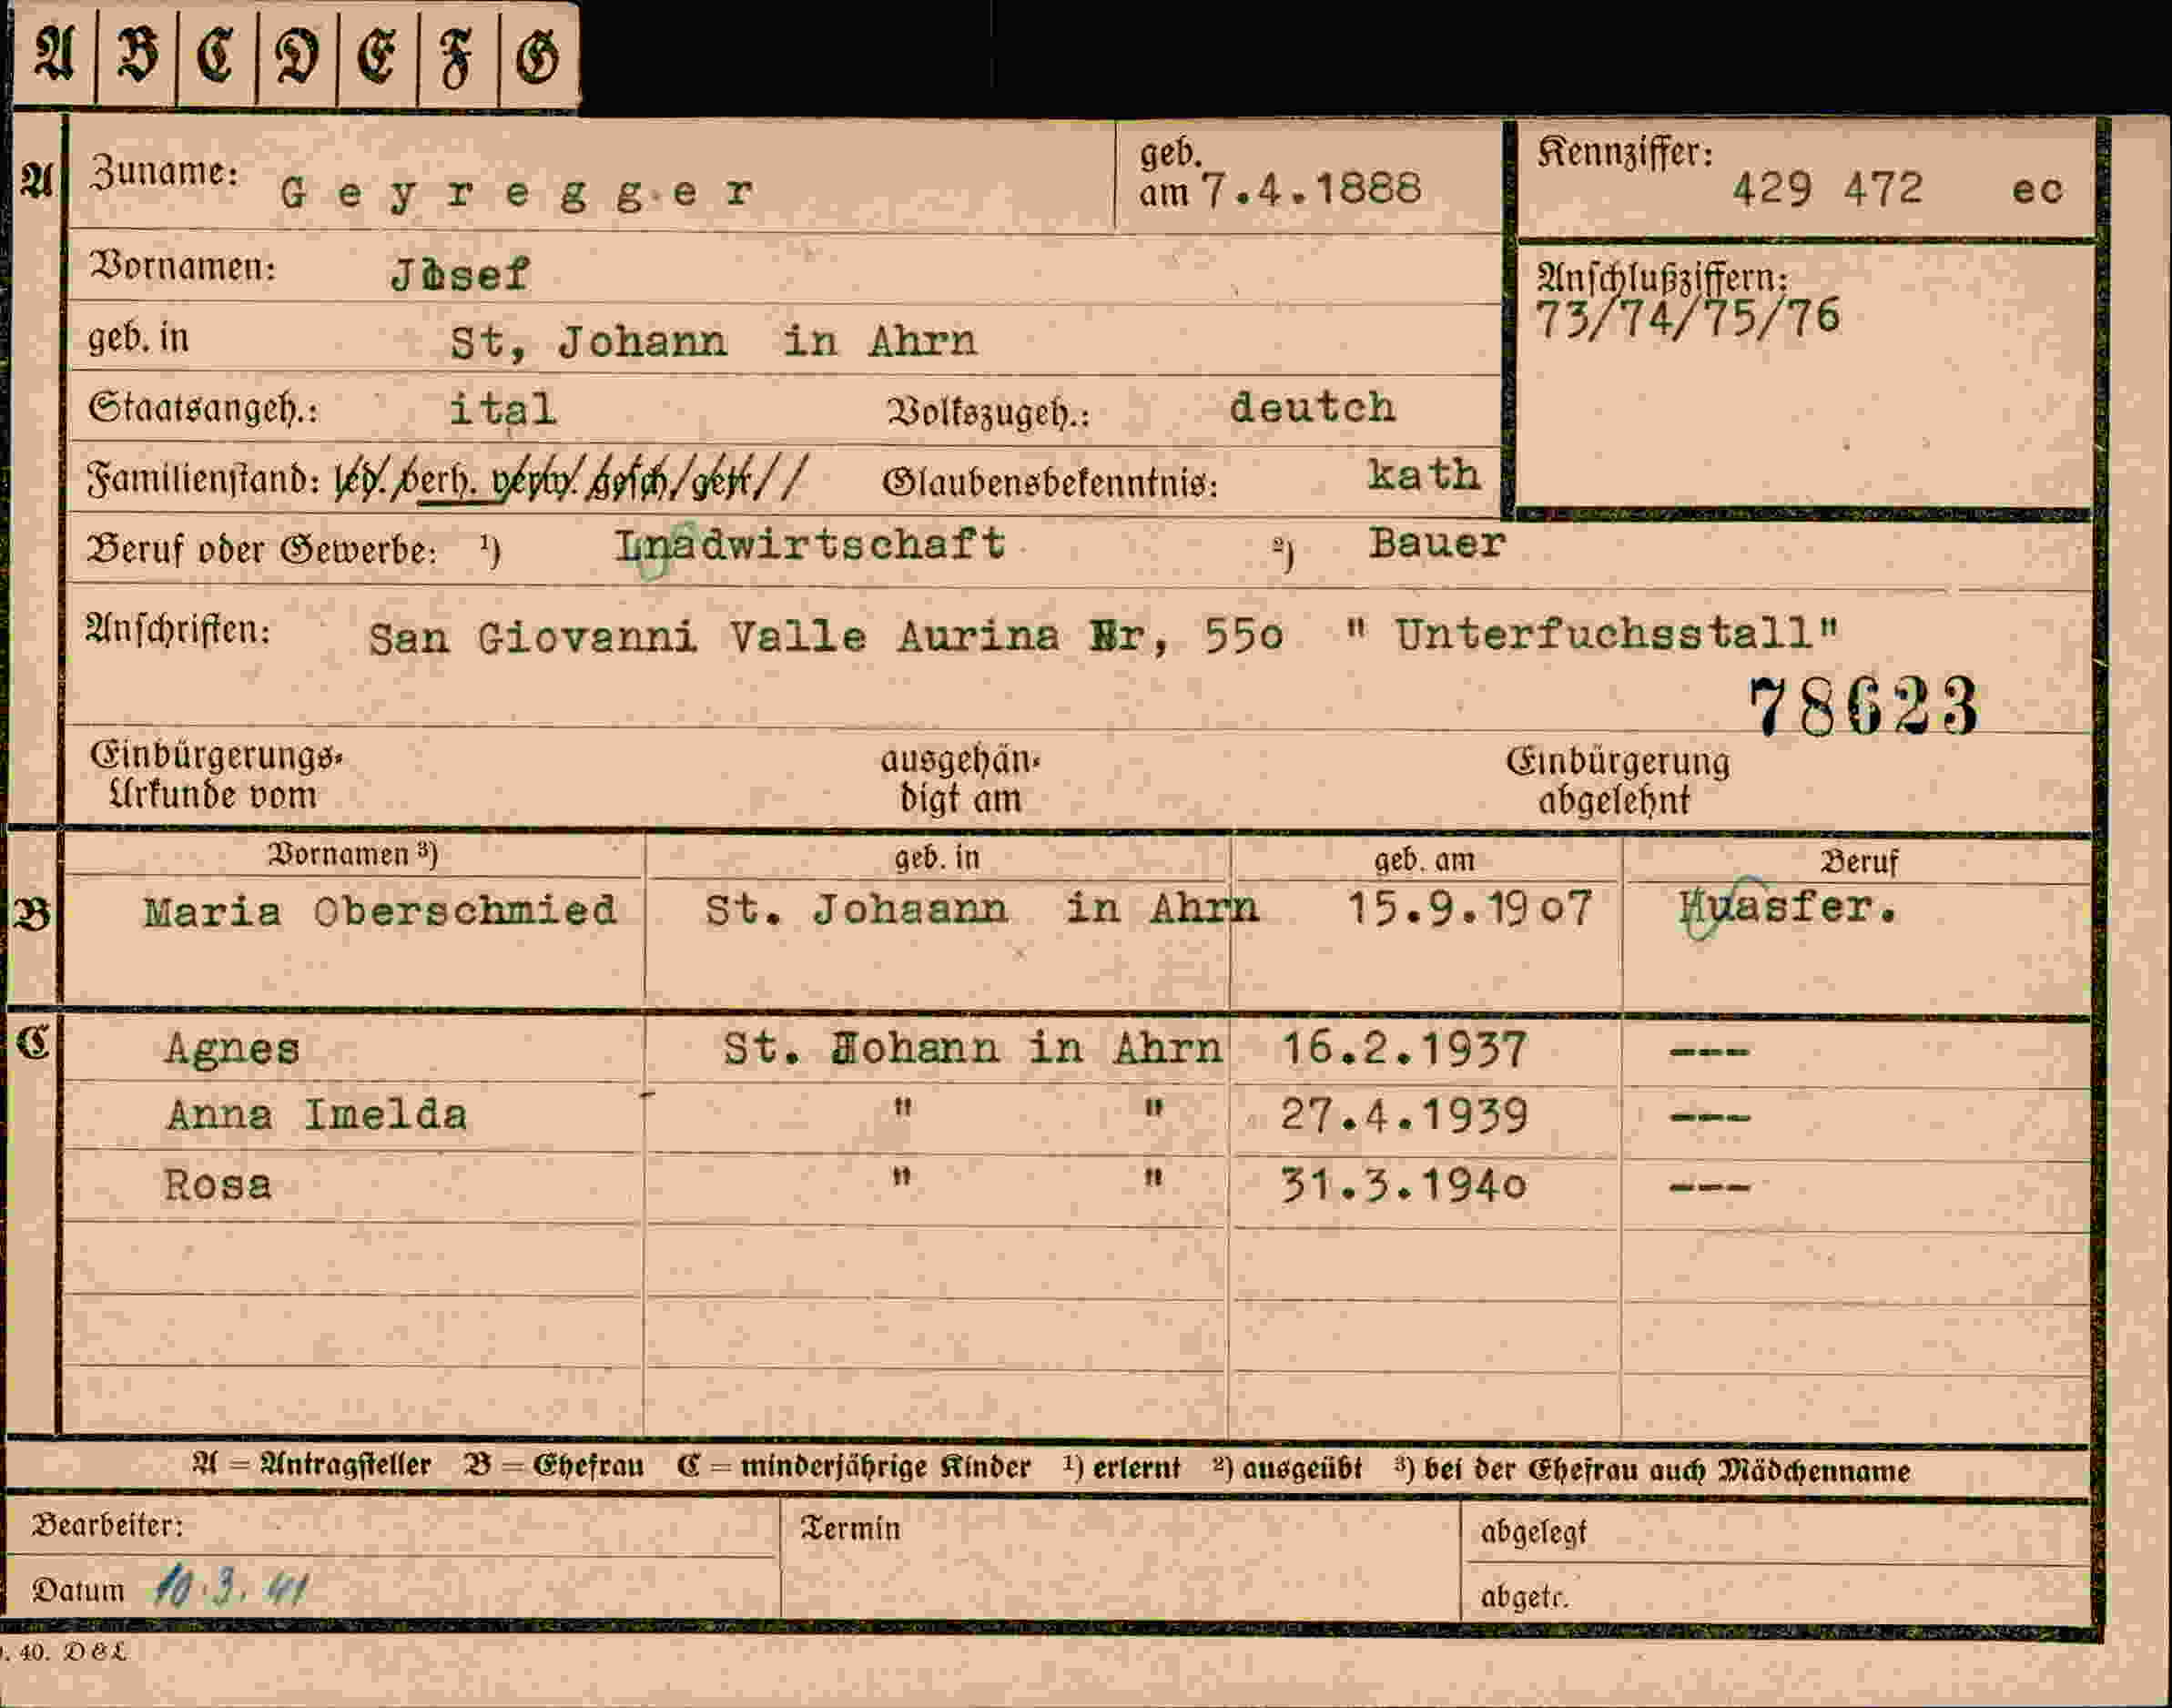 A B C D E F G
A Zuname: Geyregger geb. am 7.4.1888 Kennziffer: 429 472 ec
Vornamen: Josef Anschlußziffern: 73/74/75/76
geb. in St, Johann in Ahrn
Staatsangeh.: ital Volkszugeh.: deutch
Familienstand: led. verh. verw. gesch. getr. Glaubensbekenntnis: kath
Beruf oder Gewerbe: 1) Lnadwirtschaft 2) Bauer
Anschriften: San Giovanni Valle Aurina Nr, 55o " Unterfuchsstall"
78623
Einbürgerungs- Urkunde vom ausgehän- digt am Einbürgerung abgelehnt
Vornamen 3) geb. in geb. am Beruf
B Maria Oberschmied St. Johaann in Ahrn 15.9.19o7 Huasfer.
C Agnes St. Johann in Ahrn 16.2.1937 ---
Anna Imelda " " 27.4.1939 ---
Rosa " " 31.3.194o ---
A = Antragsteller B = Ehefrau C = minderjährige Kinder 1) erlernt 2) ausgeübt 3) bei der Ehefrau auch Mädchenname
Bearbeiter: Termin abgelegt
Datum 10.3.41 abgetr.
. 40. D&L